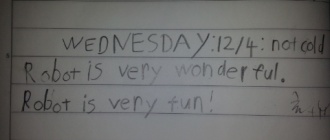 WEDNESDAY:12/4: not cold
Robot is very wonderful.
Robot is very fun!